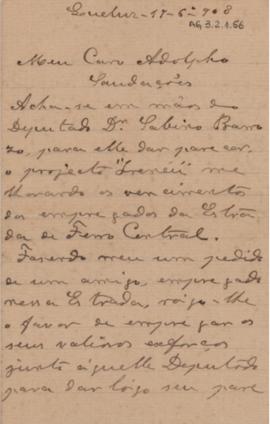 Queluz - 17-6º 908
AG 3.2.1.66
Meu Caro Adolpho
Saudações
Acha-se em mãos do
Deputado Dr. Sabino Barro
zo, para elle dar parecer,
o projecto "Irenêu" me
lhorando os vencimento
dos empregados da Estra
da de Ferro Central.
Fazendo meu um pedido
de um amigo, empregado
nessa Estrada, rogo-lhe
o favor de empregar os
seus valiosos exforços
junto áquelle Deputado
para dar logo seu pare